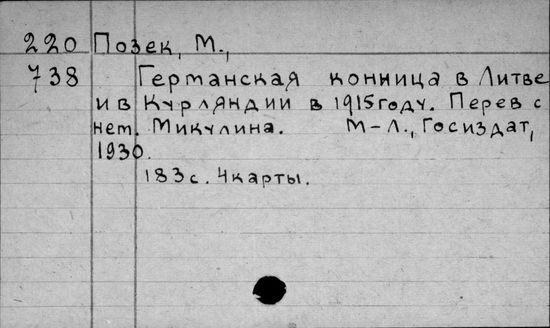 220 Позек, М.,
738 Германская конница в Литве
и в Курляндии в 1915 году. Перев с
нем. Микулина. М-Л., Госиздат,
1930.
183 с. 4 карты.